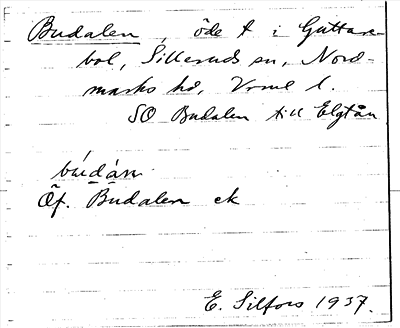 Budalen, öde t i Guttane-
bol, Silleruds sn, Nord-
marks hd, Vrml l.
SO Budalen till Elgtån
búdán
Öf. Budalen ek
E. Silfors 1937.